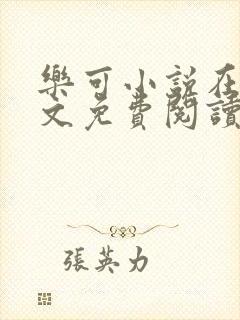 樂可小說在
文免費閱讀
張英力